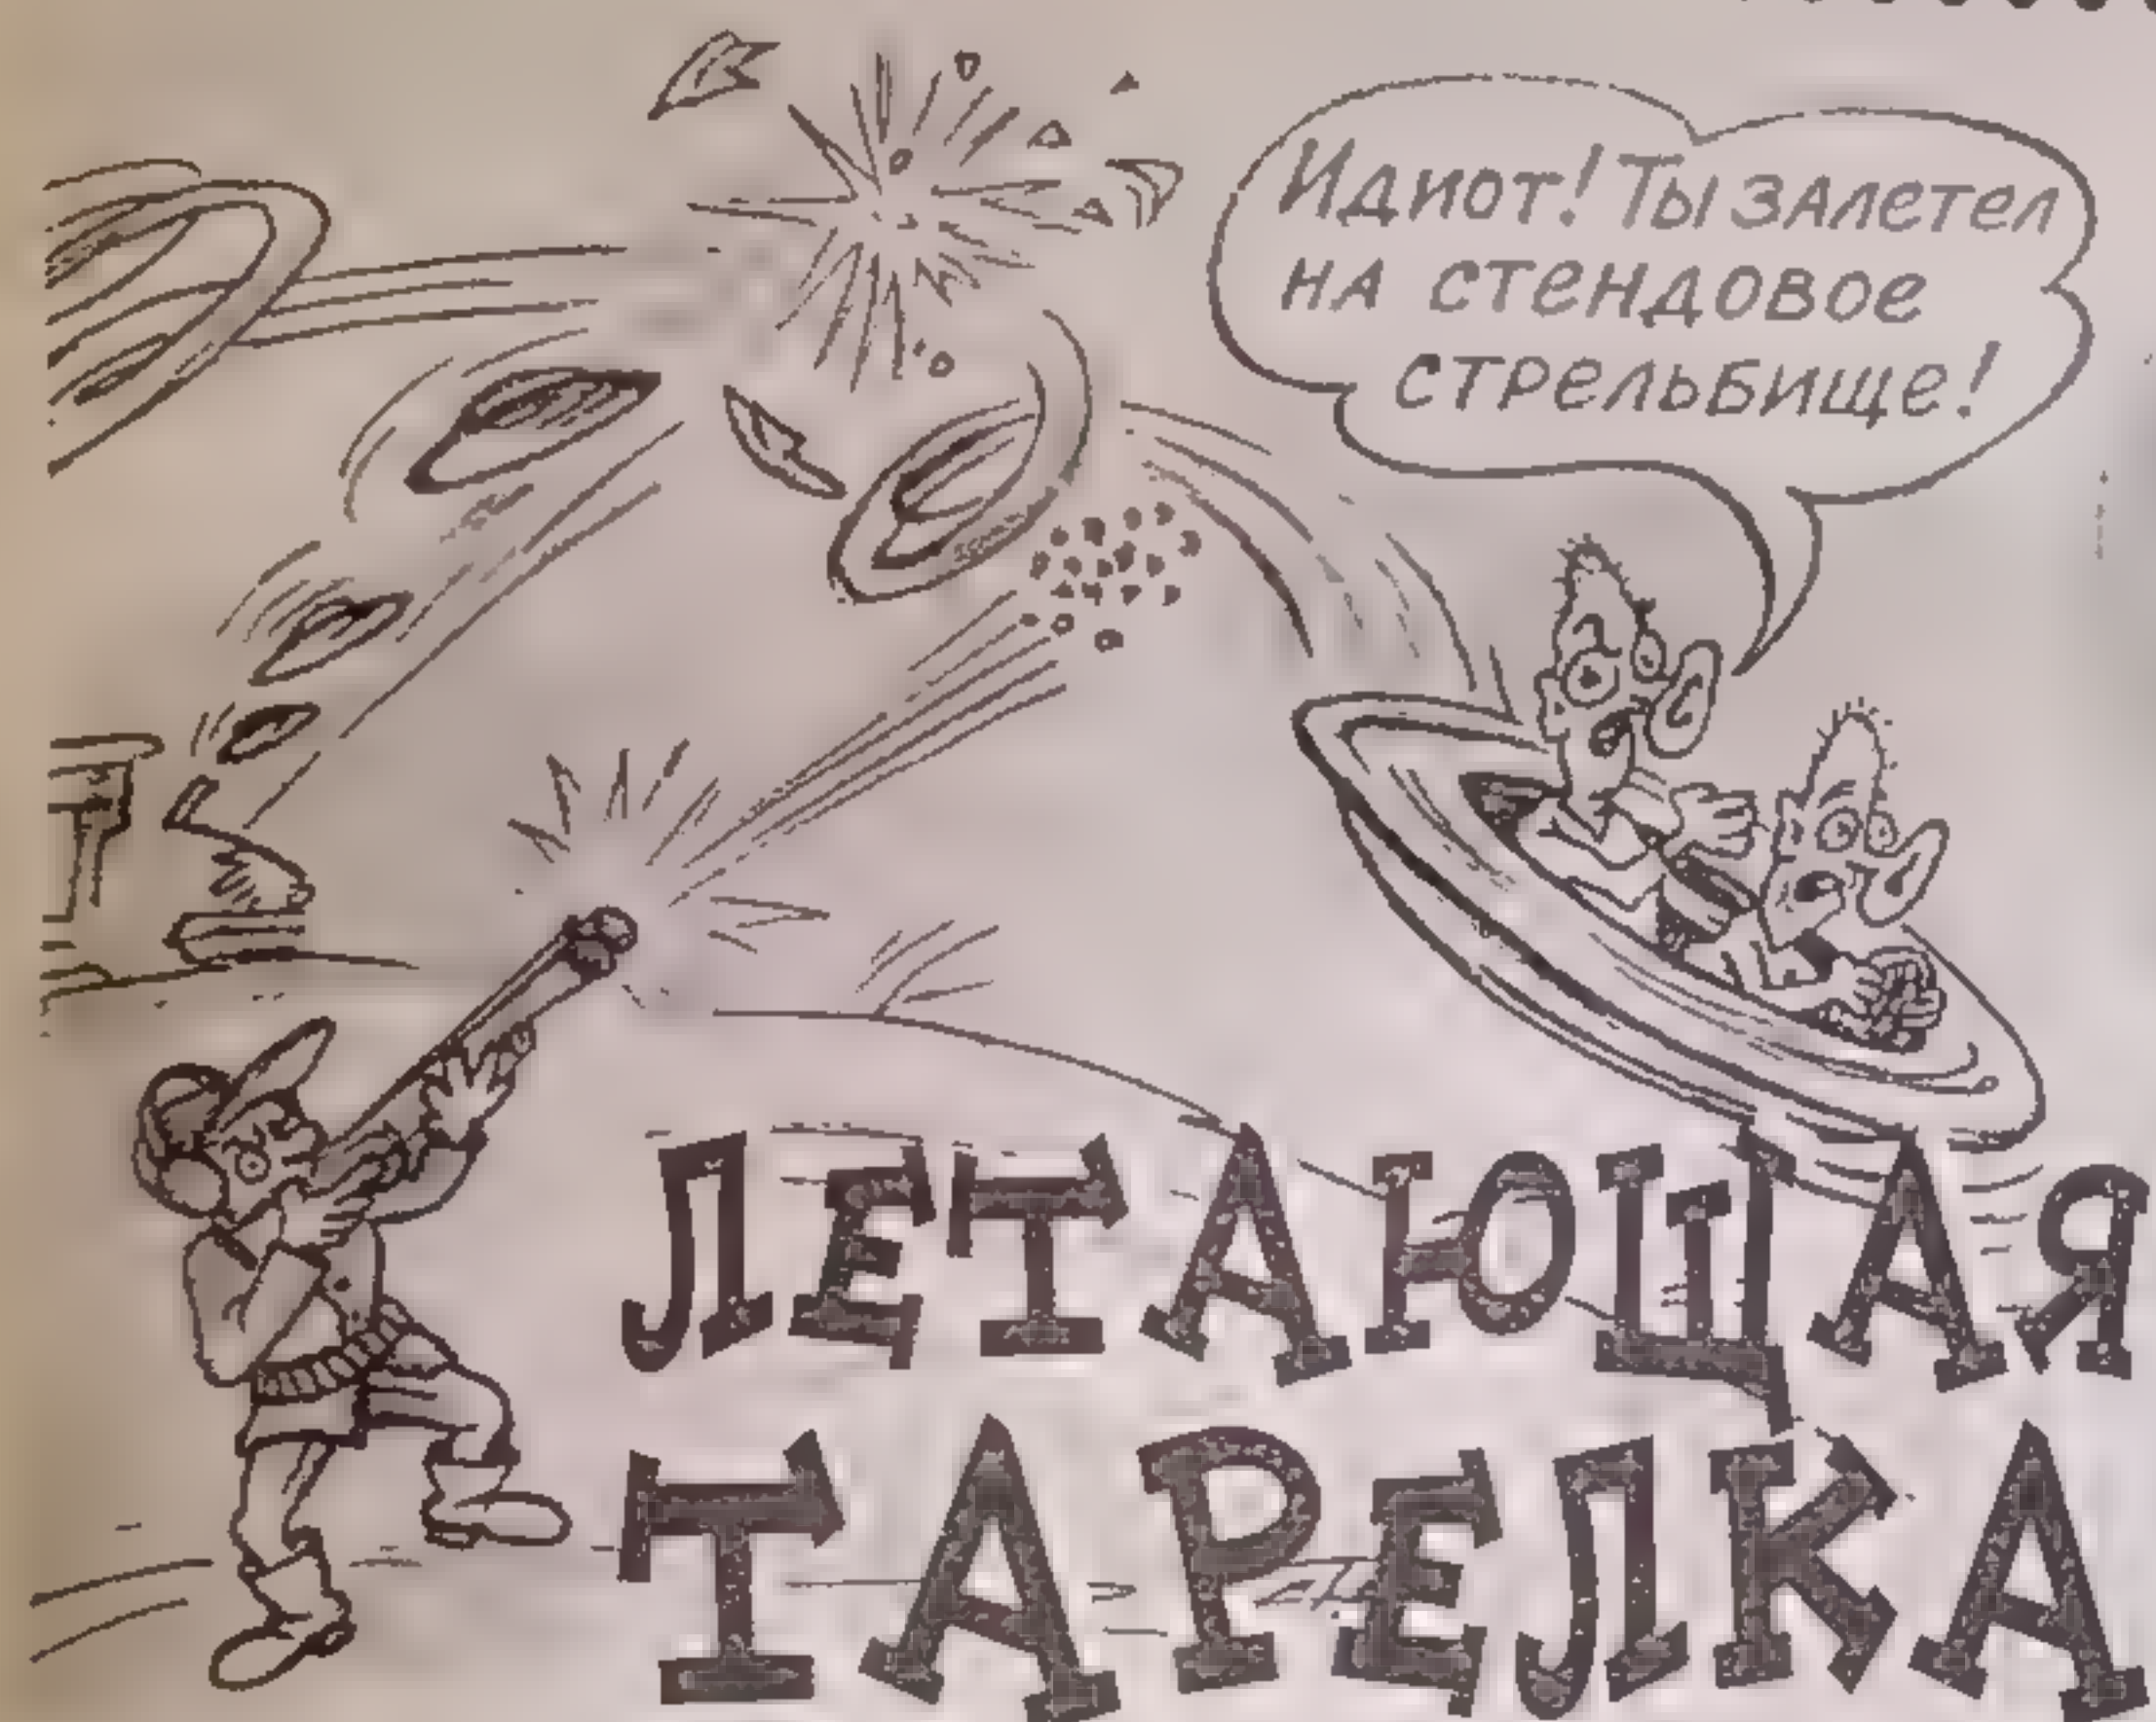 Идиот! Ты залетел
на стендовое
стрельбище!
ЛЕТАЮЩАЯ
ТАРЕЛКА